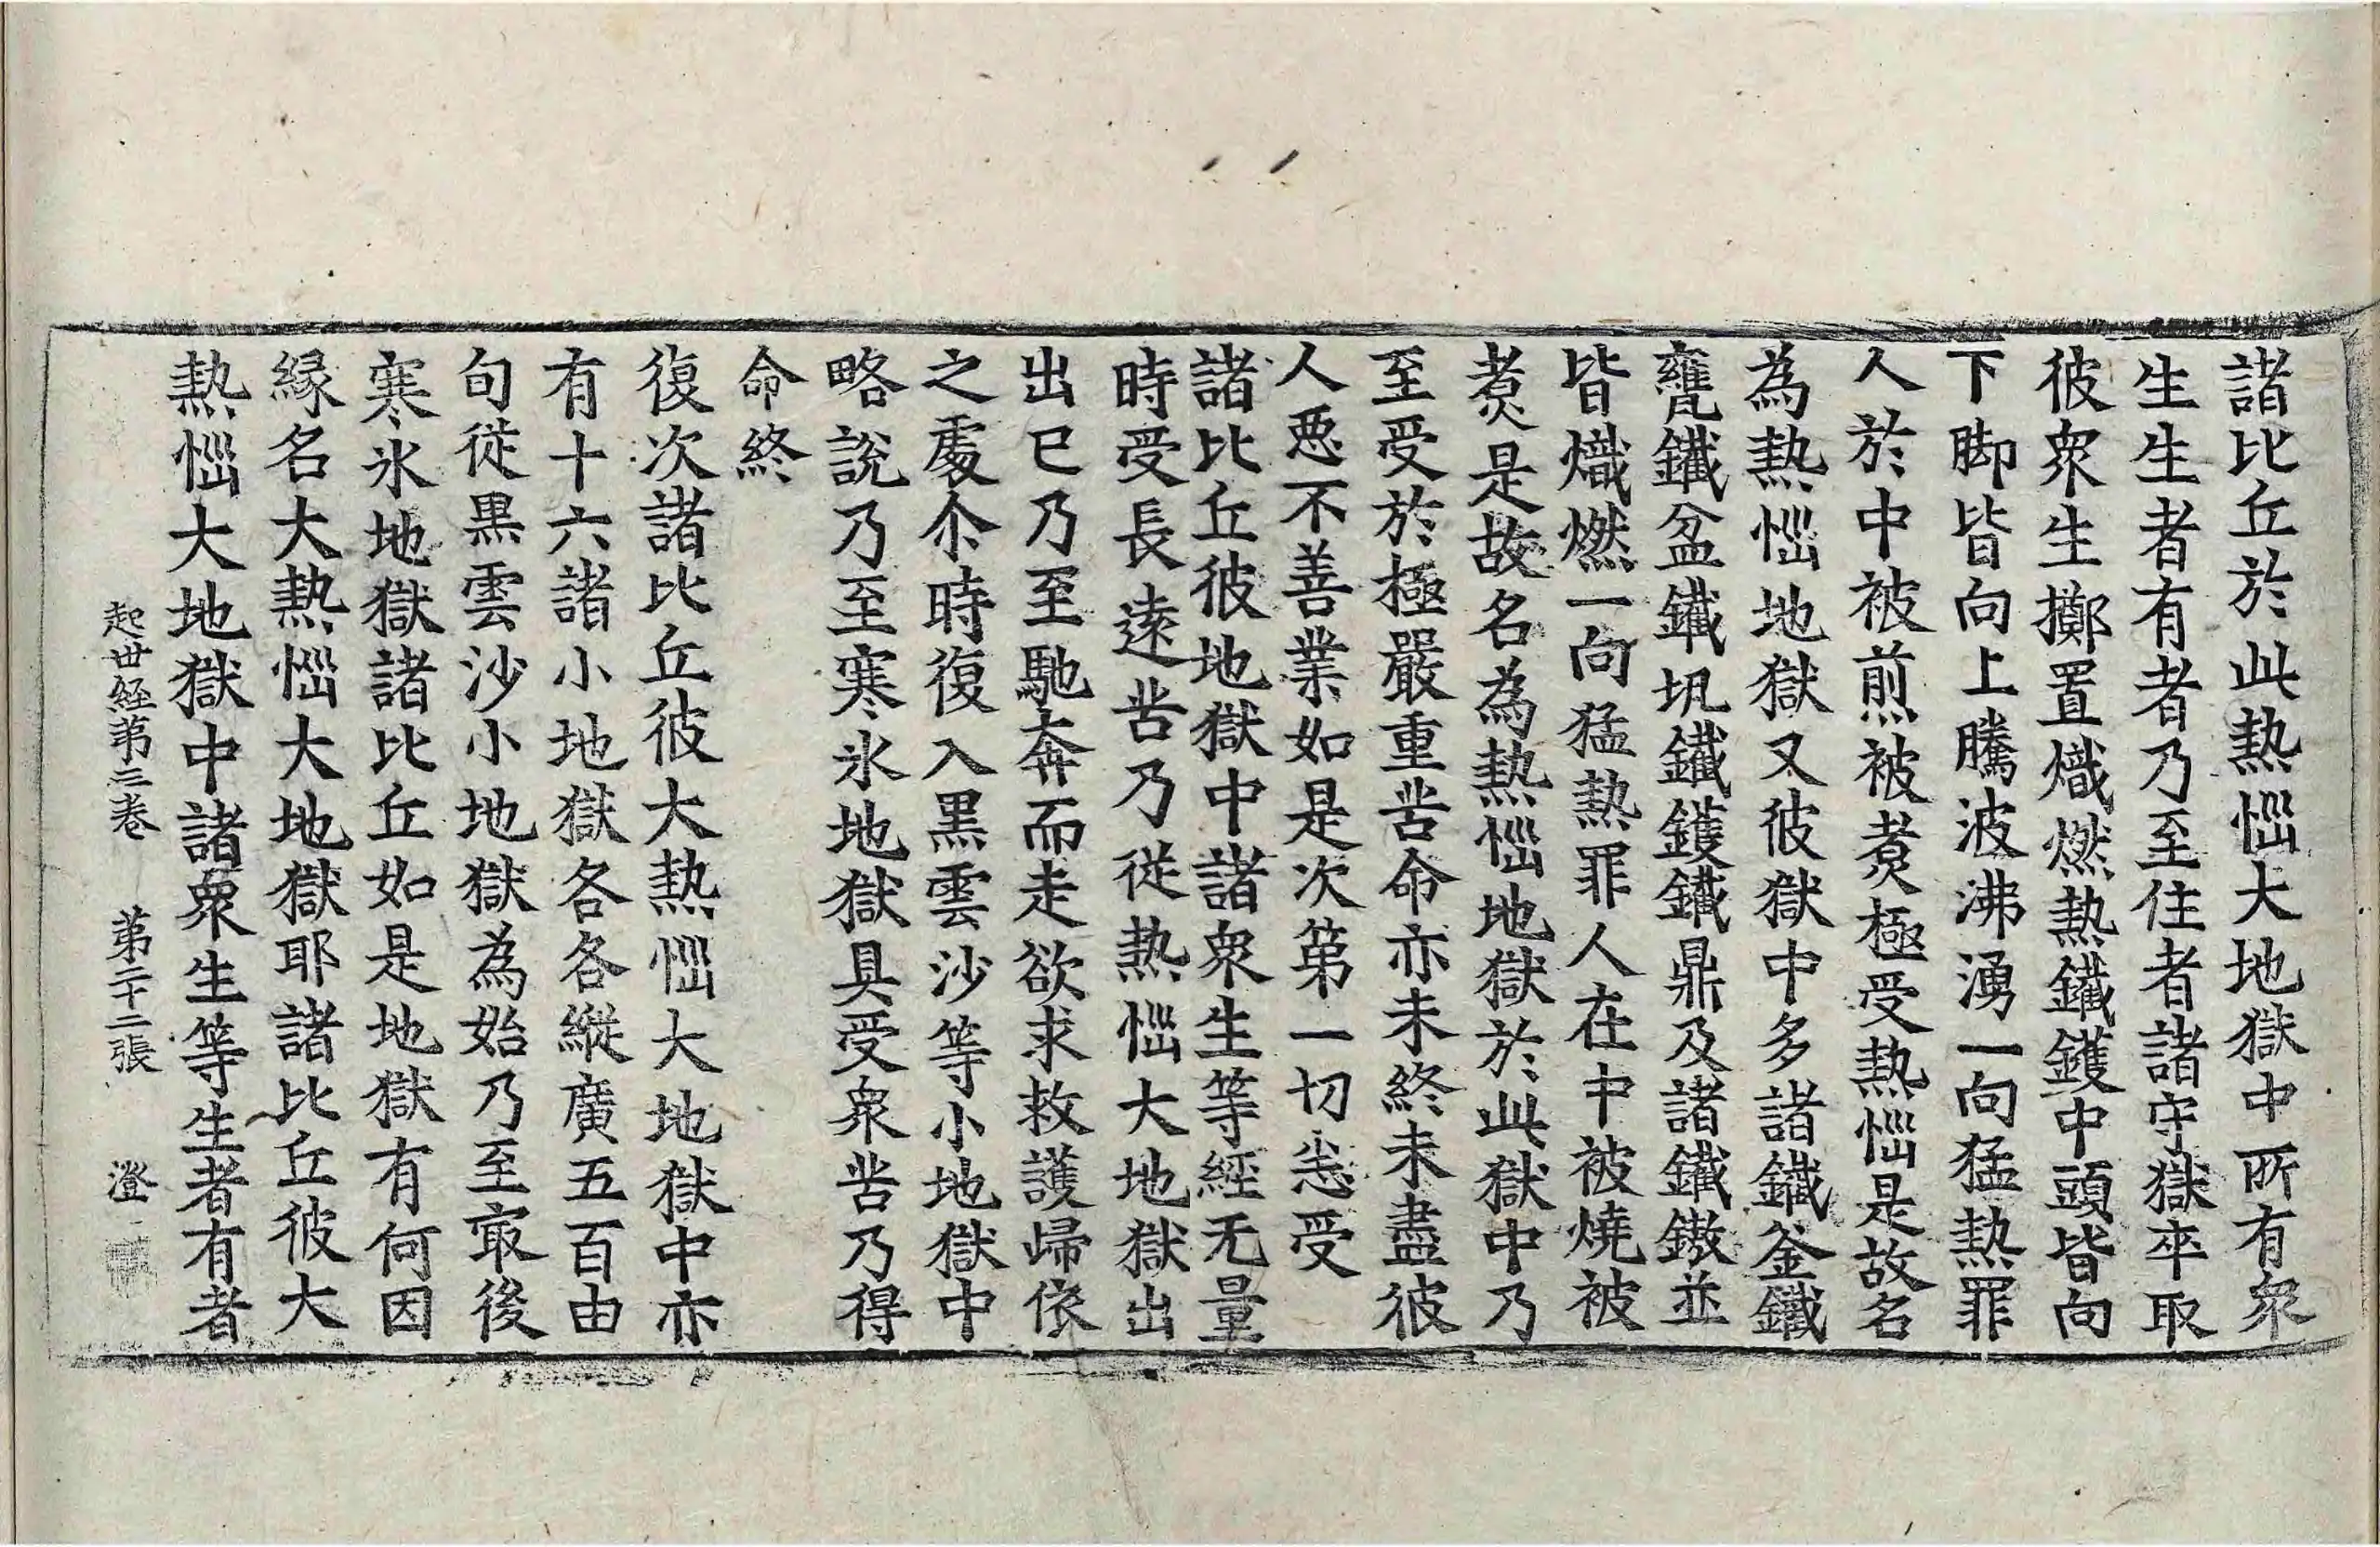 諸比丘於此熱惱大地獄中所有衆
生生者有者乃至住者諸守獄卒取
彼衆生擲置熾燃熱鐵鑊中頭皆向
下脚皆向上騰波沸湧一向猛熱罪
人於中被煎被煮極受熱惱是故名
為熱惱地獄又彼獄中多諸鐵釜鐵
甕鐵盆鐵瓨鐵鑊鐵鼎及諸鐵鏊並
皆熾燃一向猛熱罪人在中被燒被
煮是故名為熱惱地獄於此獄中乃
至受於極嚴重苦命亦未終未盡彼
人惡不善業如是次第一切悉受
諸比丘彼地獄中諸衆生等經无量
時受長遠苦乃從熱惱大地獄出
出已乃至馳奔而走欲求救護歸依
之處尒時復入黑雲沙等小地獄中
略說乃至寒氷地獄具受衆苦乃得
命終
復次諸比丘彼大熱惱大地獄中亦
有十六諸小地獄各各縱廣五百由
旬從黑雲沙小地獄為始乃至㝡後
寒氷地獄諸比丘如是地獄有何因
緣名大熱惱大地獄耶諸比丘彼大
熱惱大地獄中諸衆生等生者有者
起世經第三卷 第二十二張 澄